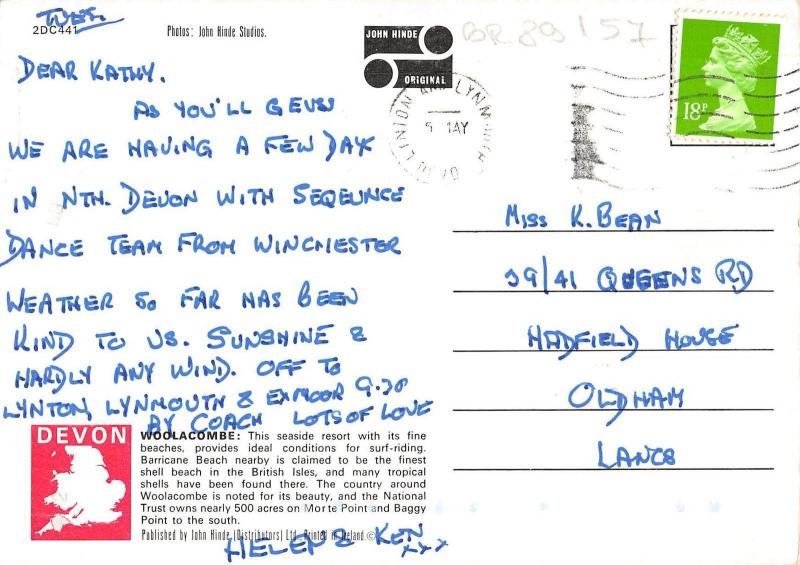 TUES.
2DC441
Photos: John Hinde Studios.
JOHN HINDE
ORIGINAL
BR 89 157
18P
DEAR KATHY.
AS YOU'LL GEUSS
WE ARE HAVING A FEW DAYS
IN NTH. DEVON WITH SEQEUNCE
DANCE TEAM FROM WINCHESTER
WEATHER SO FAR HAS BEEN
KIND TO US. SUNSHINE &
HARDLY ANY WIND. OFF TO
LYNTON, LYNMOUTH & EXMOOR 9.30
BY COACH LOTS OF LOVE
HELEN & KEN
xxx
MISS K. BEAN
39/41 QUEENS RD
HADFIELD HOUSE
OLDHAM
LANCS
DEVON
WOOLACOMBE: This seaside resort with its fine
beaches, provides ideal conditions for surf-riding.
Barricane Beach nearby is claimed to be the finest
shell beach in the British Isles, and many tropical
shells have been found there. The country around
Woolacombe is noted for its beauty, and the National
Trust owns nearly 500 acres on Morte Point and Baggy
Point to the south.
Published by John Hinde (Distributors) Ltd., Printed in Ireland. ©